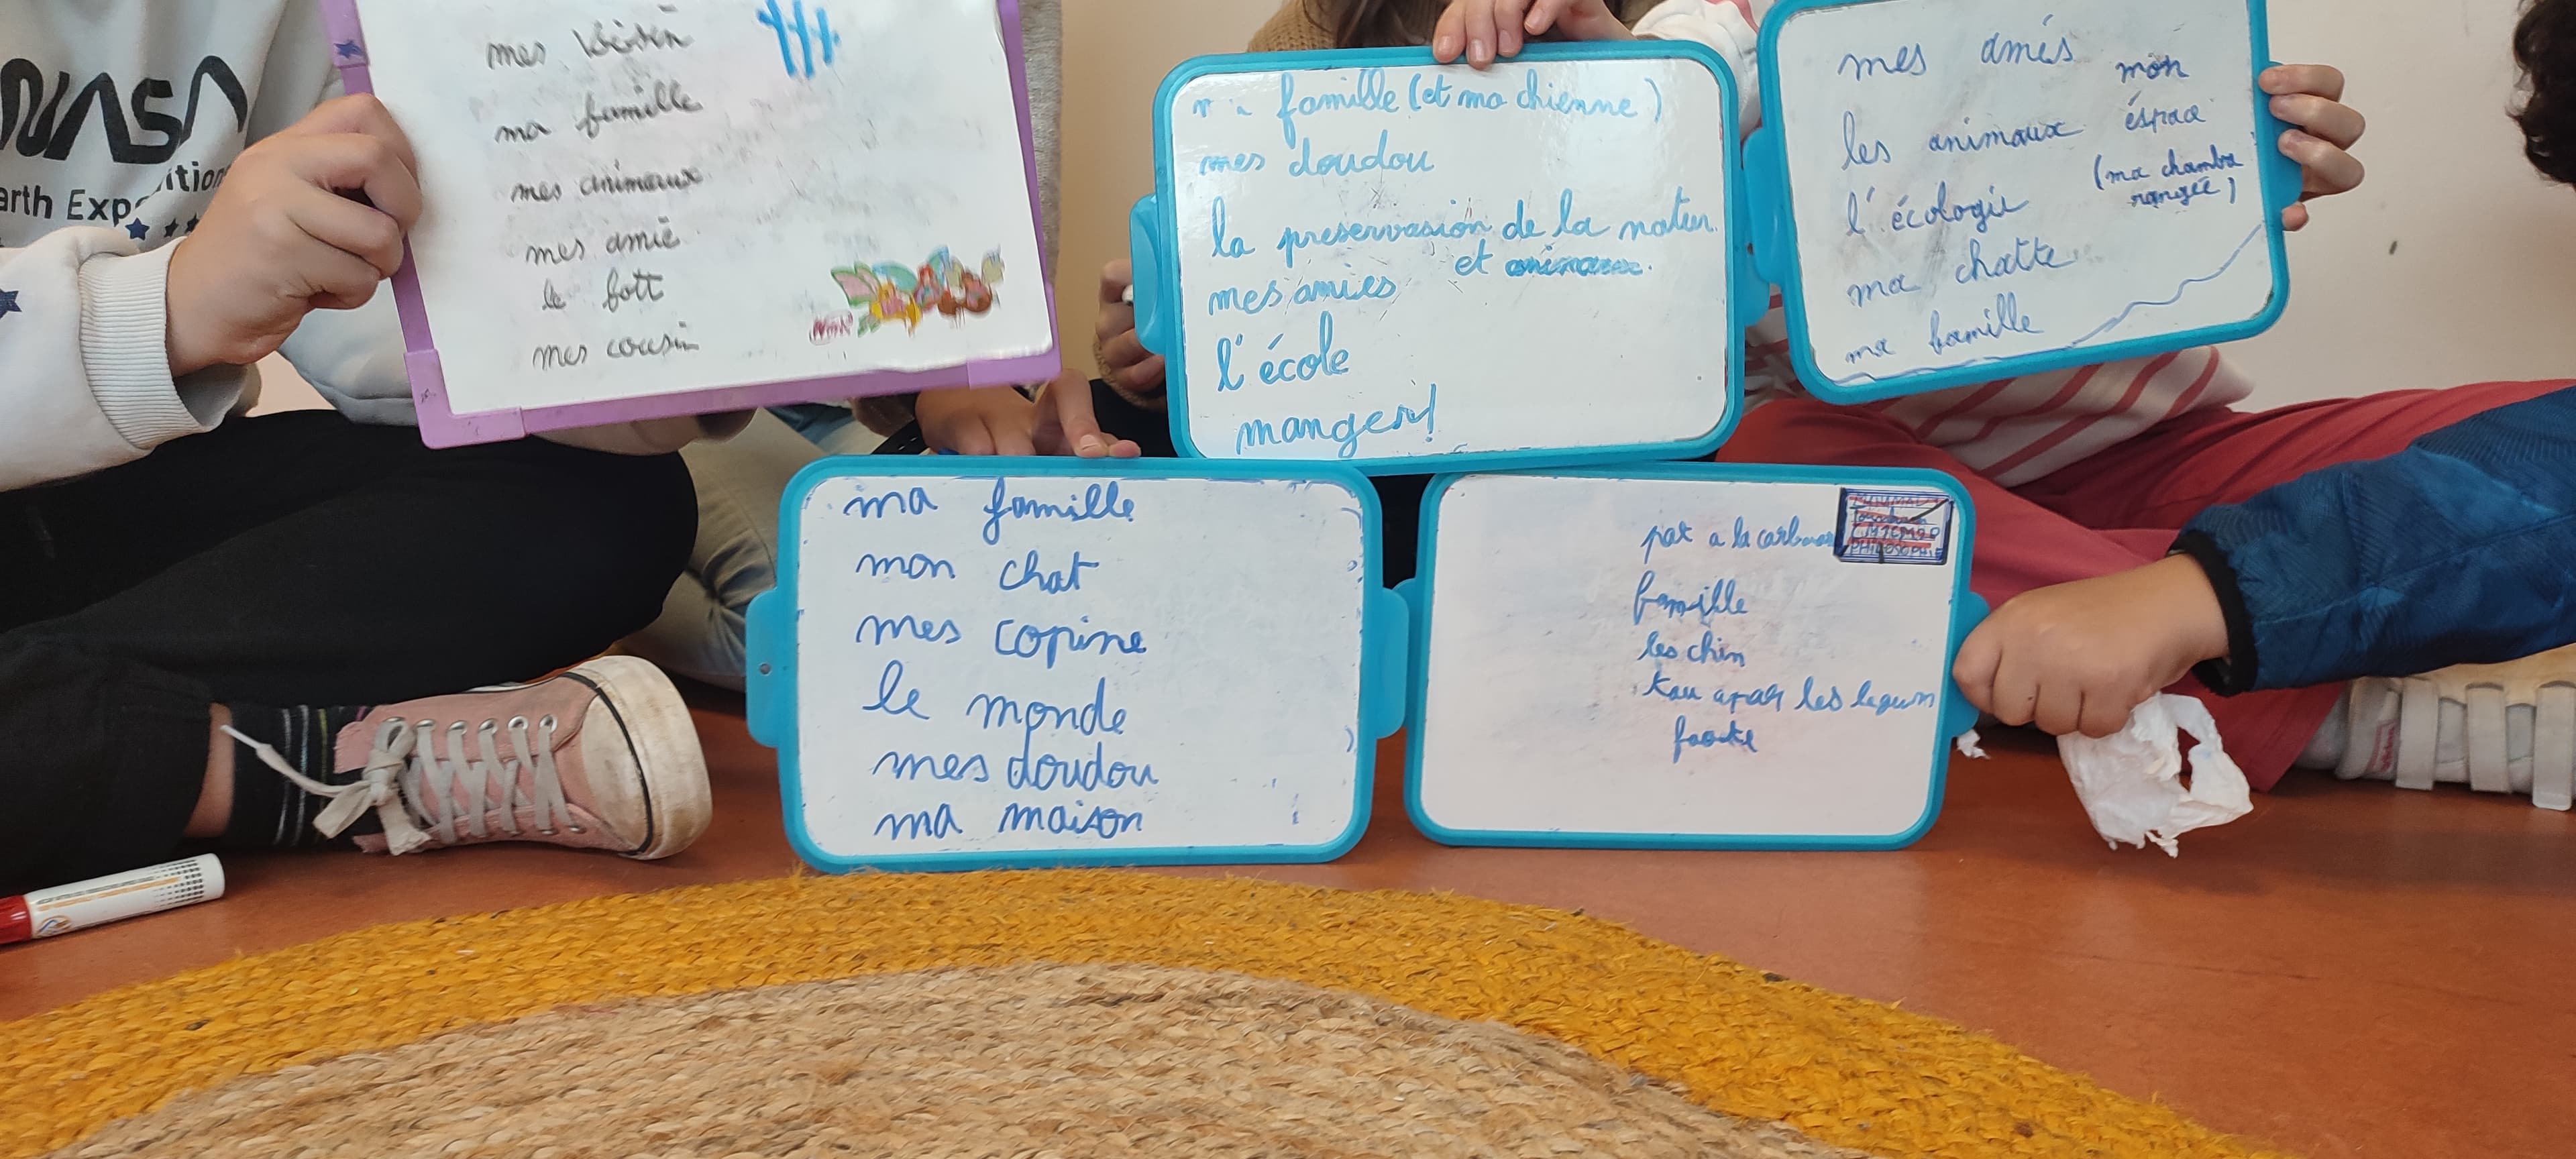 NASA
arth Exp ition
mes
ma famille
mes animaux
mes amie
le fott
mes cousin
famille (et ma chienne)
mes doudou
la preservasion de la natur
et animaux.
mes amies
l'école
manger!
mes amés
les animaux
l'écologie
ma chatte
ma famille
mon
éspace
(ma chambre
rangée)
ma famille
mon chat
mes copine
le monde
mes doudou
ma maison
pat a la carbonara
PHILOSOPHIE
famille
les chin
les legum